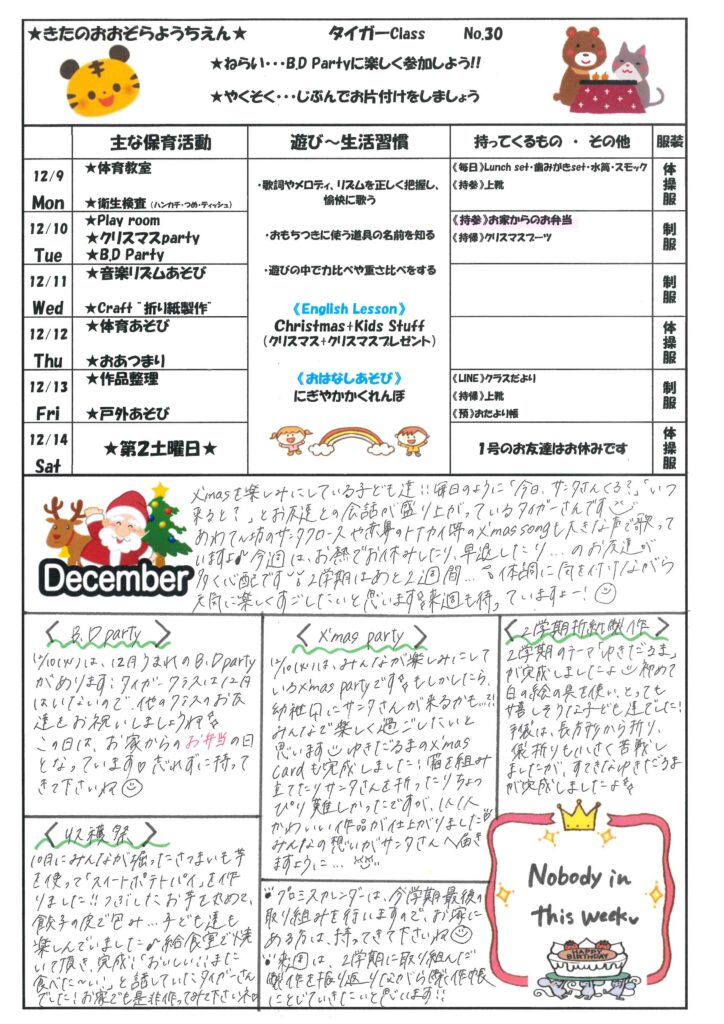 ★きたのおおぞらようちえん★ タイガーClass No.30
★ねらい・・・B.D Partyに楽しく参加しよう!!
★やくそく・・・じぶんでお片付けをしましょう
主な保育活動 遊び～生活習慣 持ってくるもの ・ その他 服装
12/9 Mon
★体育教室
★衛生検査(ハンカチ・つめ・ティッシュ)
《毎日》Lunch set・歯みがきset・水筒・スモック
《持参》上靴
体操服
12/10 Tue
★Play room
★クリスマスparty
★B.D Party
《持参》お家からのお弁当
《持帰》クリスマスブーツ
制服
12/11 Wed
★音楽リズムあそび
★Craft “折り紙製作”
制服
12/12 Thu
★体育あそび
★おあつまり
体操服
12/13 Fri
★作品整理
★戸外あそび
《LINE》クラスだより
《持帰》上靴
《預》おたより帳
制服
12/14 Sat
★第2土曜日★
1号のお友達はお休みです
体操服
・歌詞やメロディ、リズムを正しく把握し、
愉快に歌う
・おもちつきに使う道具の名前を知る
・遊びの中で力比べや重さ比べをする
《English Lesson》
Christmas+Kids Stuff
(クリスマス+クリスマスプレゼント)
《おはなしあそび》
にぎやかかくれんぼ
December
X'masを楽しみにしている子ども達!!毎日のように「今日、サンタさんくる?」「いつ
来ると?」とお友達との会話が盛り上がっているタイガーさんです
あわてん坊のサンタクロースや赤鼻のトナカイ等のX'mas songも大きな声で歌って
いますよ♪今週は、お熱でお休みしたり、早退したり…のお友達が
多く心配です 2学期はあと2週間… 体調に気を付けながら
元気に楽しくすごしたいと思います 来週も待っていますよー!
〈B.D party〉
12/10(火)は、12月うまれのB.D party
があります!タイガークラスは12月
はいないので、他のクラスのお友
達をお祝いしましょうね
この日は、お家からのお弁当の日
となっています♡忘れずに持って
きて下さいね
〈X'mas party〉
12/10(火)は、みんなが楽しみにして
いるX'mas partyです もしかしたら、
幼稚園にサンタさんが来るかも…?!
みんなで楽しく過ごしたいと
思います ゆきだるまのX'mas
cardも完成しました!箱を組み
立てたりサンタさんを折ったりちょっ
ぴり難しかったですが、1人1人
かわいい作品が仕上がりました
みんなの想いがサンタさんへ届き
ますように…
〈2学期折紙製作〉
2学期のテーマ「ゆきだるま」
が完成しましたよ 初めて
白の絵の具を使い、とっても
嬉しそうな子ども達でした!
手袋は、長方形から折り、
袋折りも小さく苦戦し
ましたが、すてきなゆきだるま
が完成しましたよ
〈収穫祭〉
10月にみんなが掘ったさつまいも芋
を使って「スイートポテトパイ」を作
りました!!つぶしたお芋を丸めて、
餃子の皮で包み…子ども達も
楽しんでいました♪給食室で焼
いて頂き、完成!「おいしい!!また
食べた～い!」と話していたタイガーさん
でした!お家でも是非作ってみて下さいネ
・クロミスカレンダーは、今学期最後の
取り組みを行いますので、お家に
ある方は、持ってきて下さいね
・来週は、2学期に取り組んだ
製作を振り返りながら製作帳
にとじていきたいと思います!!
Nobody in
this week
HAPPY
BIRTHDAY